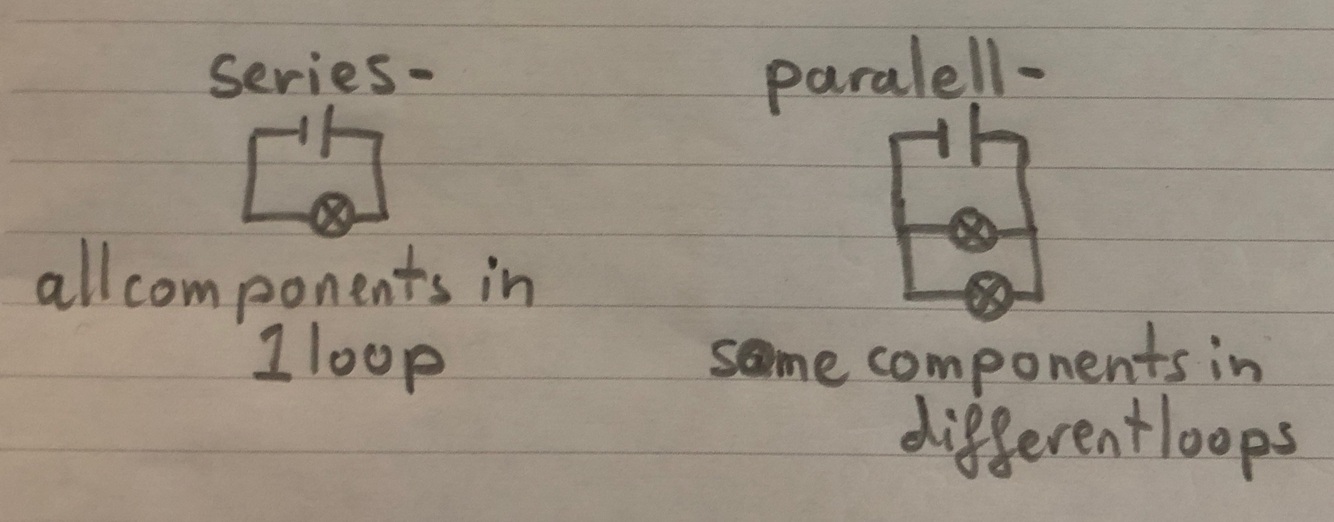 series-
paralell-
all components in
1 loop
some components in
different loops